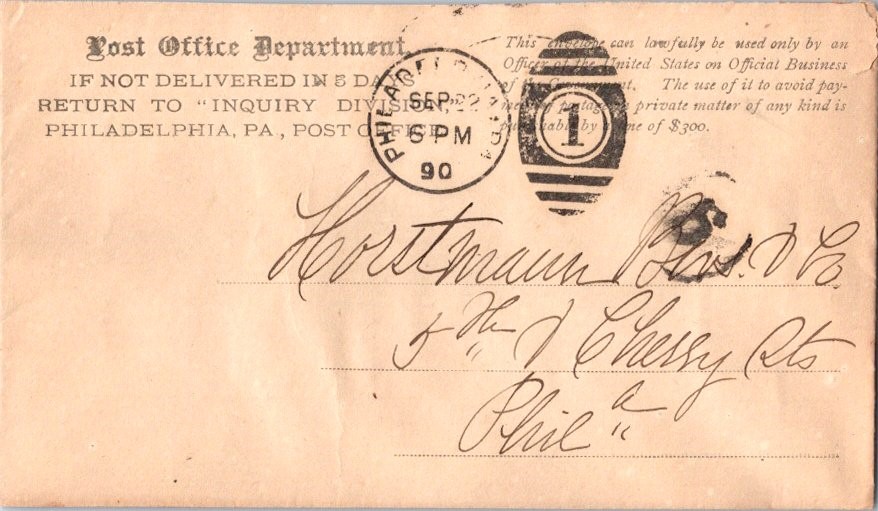 Post Office Department,
IF NOT DELIVERED IN 5 DA
RETURN TO "INQUIRY DIVISION,"
PHILADELPHIA, PA., POST OFFICE
This envelope can lawfully be used only by an
Officer of the United States on Official Business
of the Government, The use of it to avoid pay-
ment of postage on private matter of any kind is
punishable by a fine of $300.
PHILADELPHIA PA
SEP 22
6 PM
90
1
Horstmann Bros. & Co.
5th & Cherry Sts
Phila